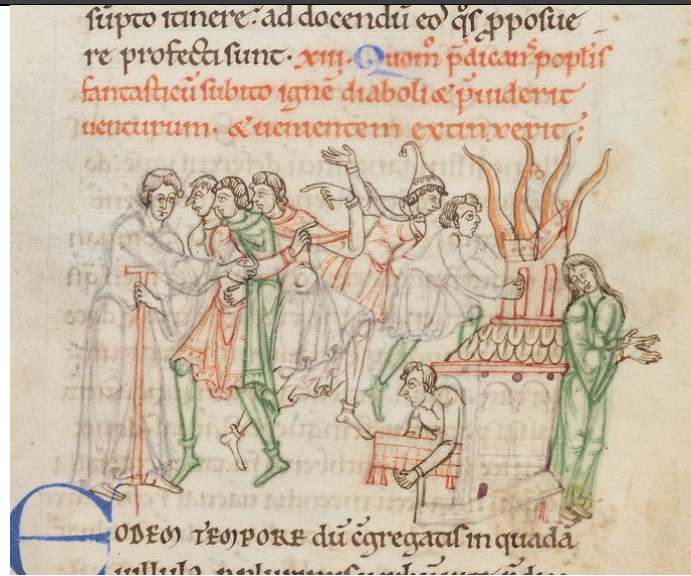 sūpto itinere: ad docendū eoꝝ q̄s ꝓposue-
re profecti sunt. xiii. Quom̄ p̄dicans poplis
fantasticū subito ignē diaboli & p̄uiderit
uenturum. & uementem extinxerit;
EODEM TEMPORE dū c̄gregatis in quada
uillula